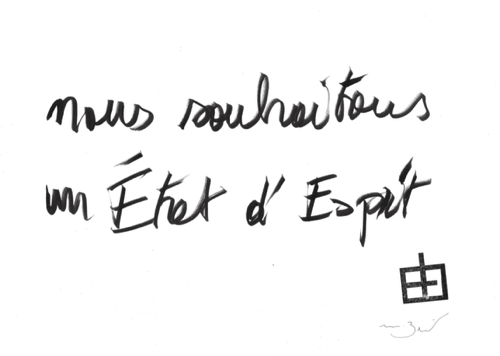 nous souhaitons
un État d'Esprit